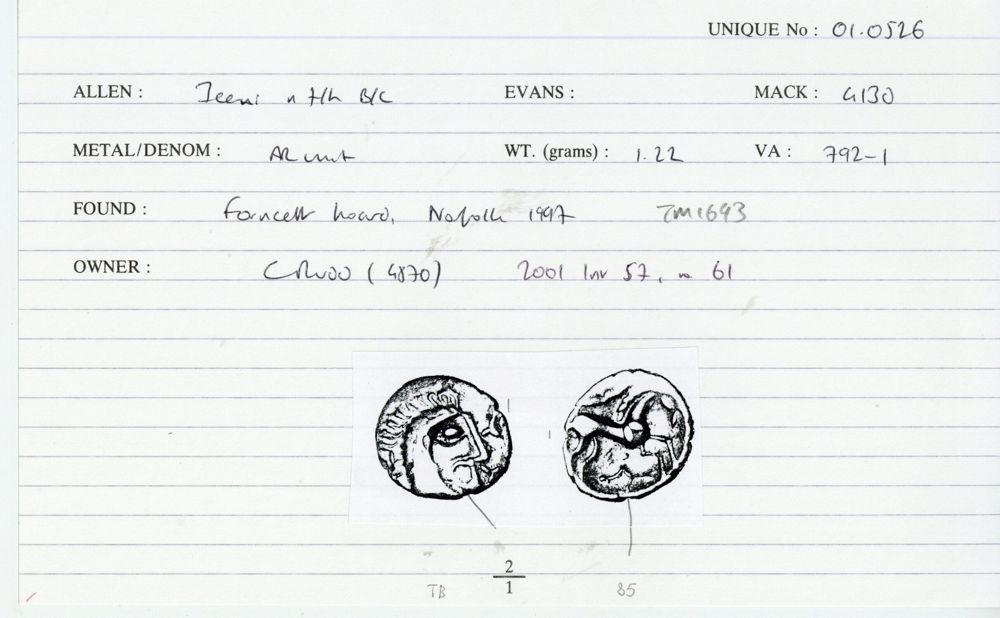 UNIQUE No : 01.0526
ALLEN : Iceni n f/h B/C EVANS : MACK : 4130
METAL/DENOM : AR unit WT. (grams) : 1.22 VA : 792-1
FOUND : Forncett hoard, Norfolk 1997 TM1693
OWNER : CR 1800 (4870) 2001 Inv 57, no 61
2
TB 1 85